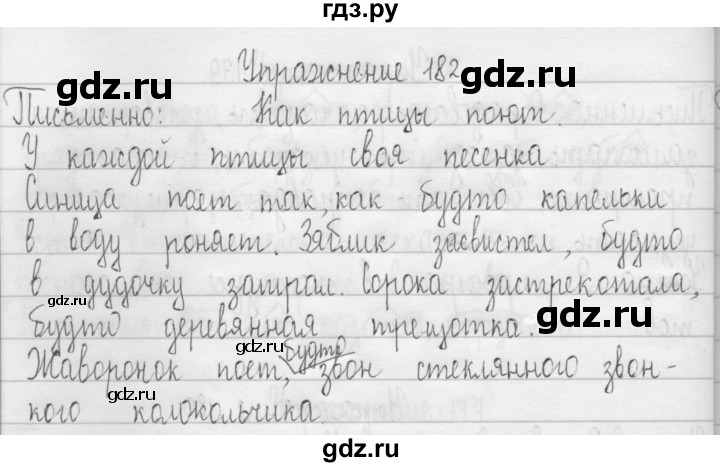 гдз.ру
Упражнение 182
Письменно: Как птицы поют.
У каждой птицы своя песенка
Синица поет так, как будто капельки
в воду роняет. Зяблик засвистел, будто
в дудочку заиграл. Сорока застрекотала,
будто деревянная трещотка.
будто
Жаворонок поет, звон стеклянного звон-
кого колокольчика
gdz.ru
gdz.ru
gdz.ru
gdz.ru
gdz.ru
gdz.ru
gdz.ru
gdz.ru